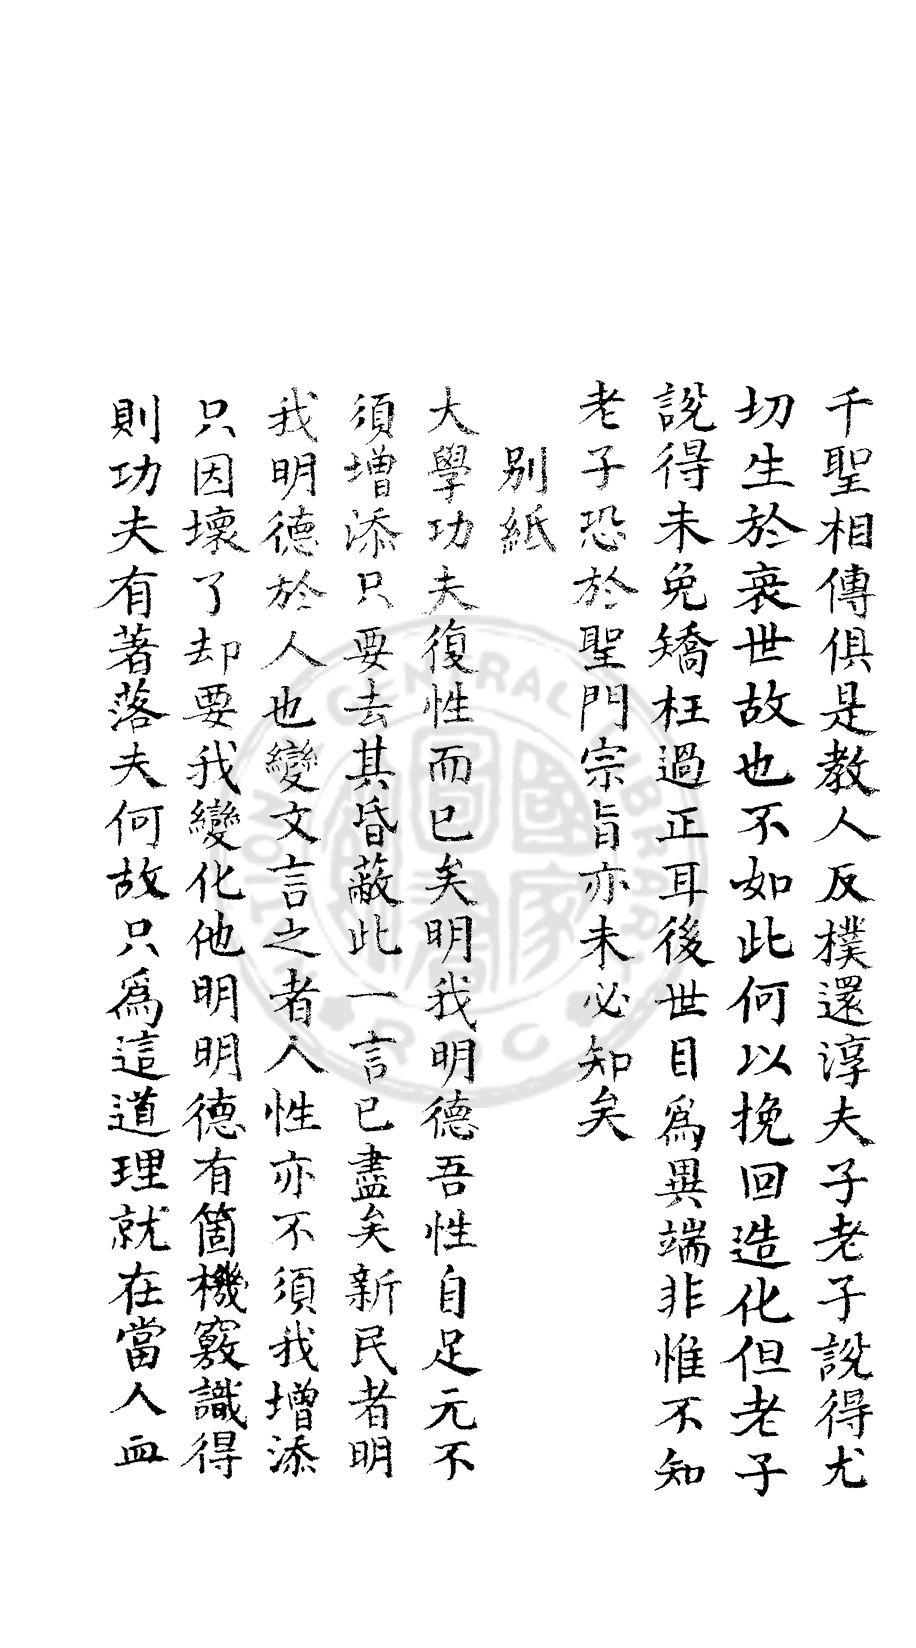 千聖相傳俱是教人反樸還淳夫子老子說得尤
切生於衰世故也不如此何以挽回造化但老子
說得未免矯枉過正耳後世目為異端非惟不知
老子恐於聖門宗旨亦未必知矣
別紙
大學功夫復性而已矣明我明德吾性自足元不
須增添只要去其昏蔽此一言已盡矣新民者明
我明德於人也變文言之者人性亦不須我增添
只因壞了却要我變化他明明德有箇機竅識得
則功夫有著落夫何故只為這道理就在當人血
NATIONAL CENTRAL LIBRARY
R.O.C
國家圖書館